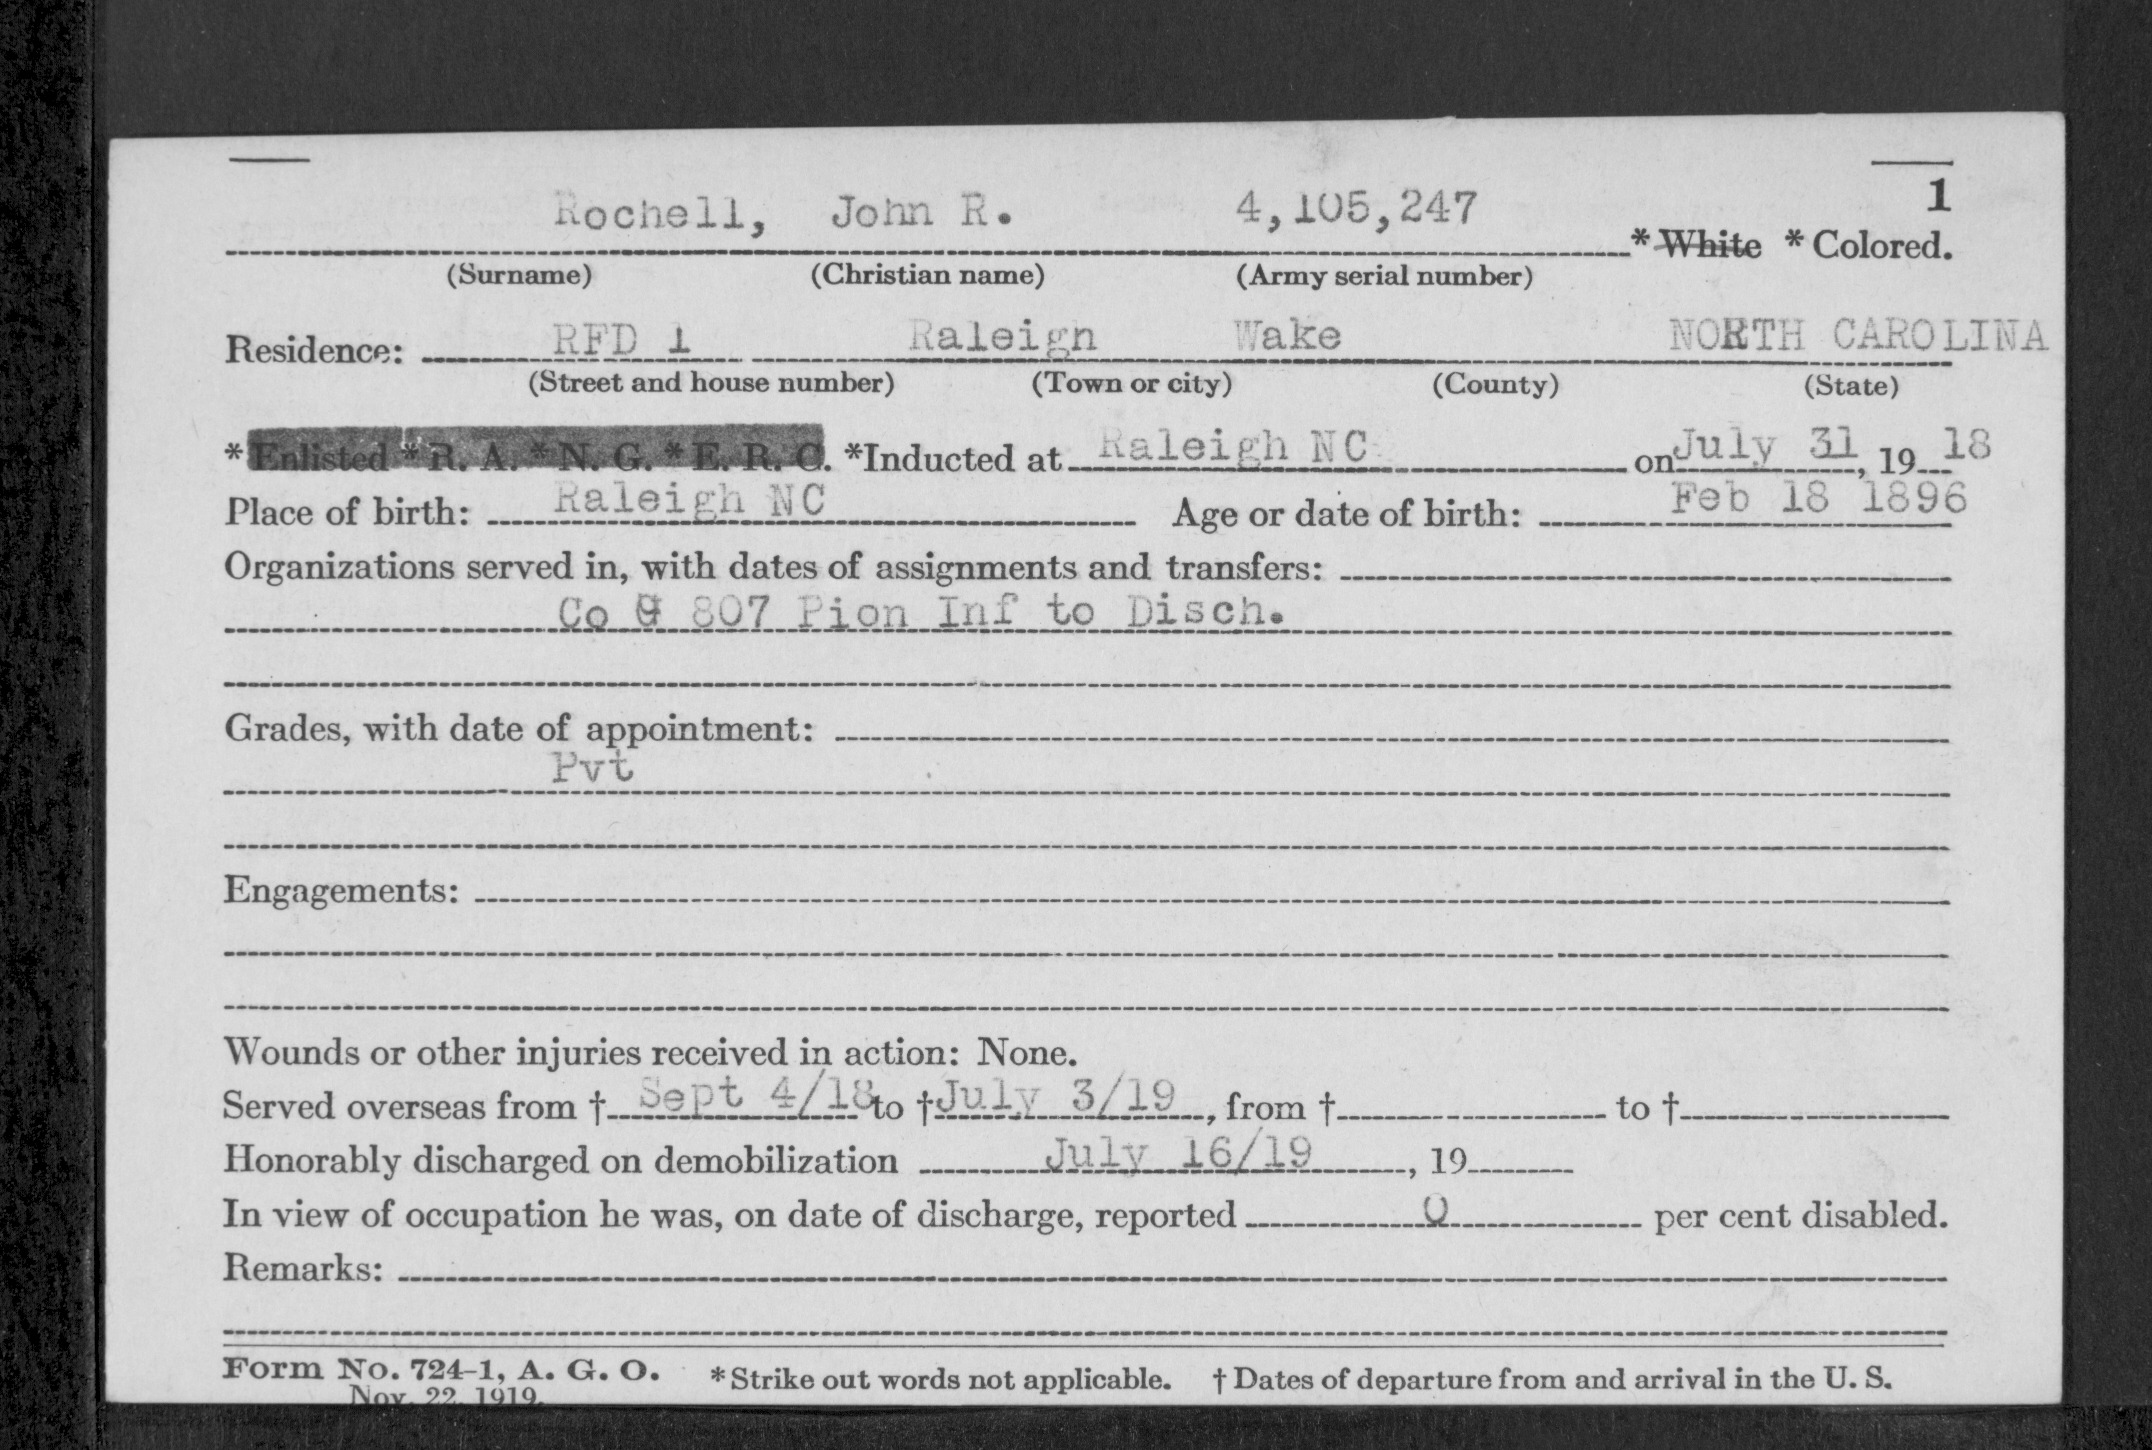 1
Rochell, John R. 4,105,247 *White *Colored.
(Surname) (Christian name) (Army serial number)
Residence: RFD 1 Raleigh Wake NORTH CAROLINA
(Street and house number) (Town or city) (County) (State)
*Enlisted *R. A. *N. G. *E. R. C. *Inducted at Raleigh NC on July 31, 19 18
Place of birth: Raleigh NC Age or date of birth: Feb 18 1896
Organizations served in, with dates of assignments and transfers:
Co G 807 Pion Inf to Disch.
Grades, with date of appointment:
Pvt
Engagements:
Wounds or other injuries received in action: None.
Served overseas from † Sept 4/18 to † July 3/19, from † to †
Honorably discharged on demobilization July 16/19, 19
In view of occupation he was, on date of discharge, reported 0 per cent disabled.
Remarks:
Form No. 724-1, A. G. O. *Strike out words not applicable. † Dates of departure from and arrival in the U. S.
Nov. 22, 1919.